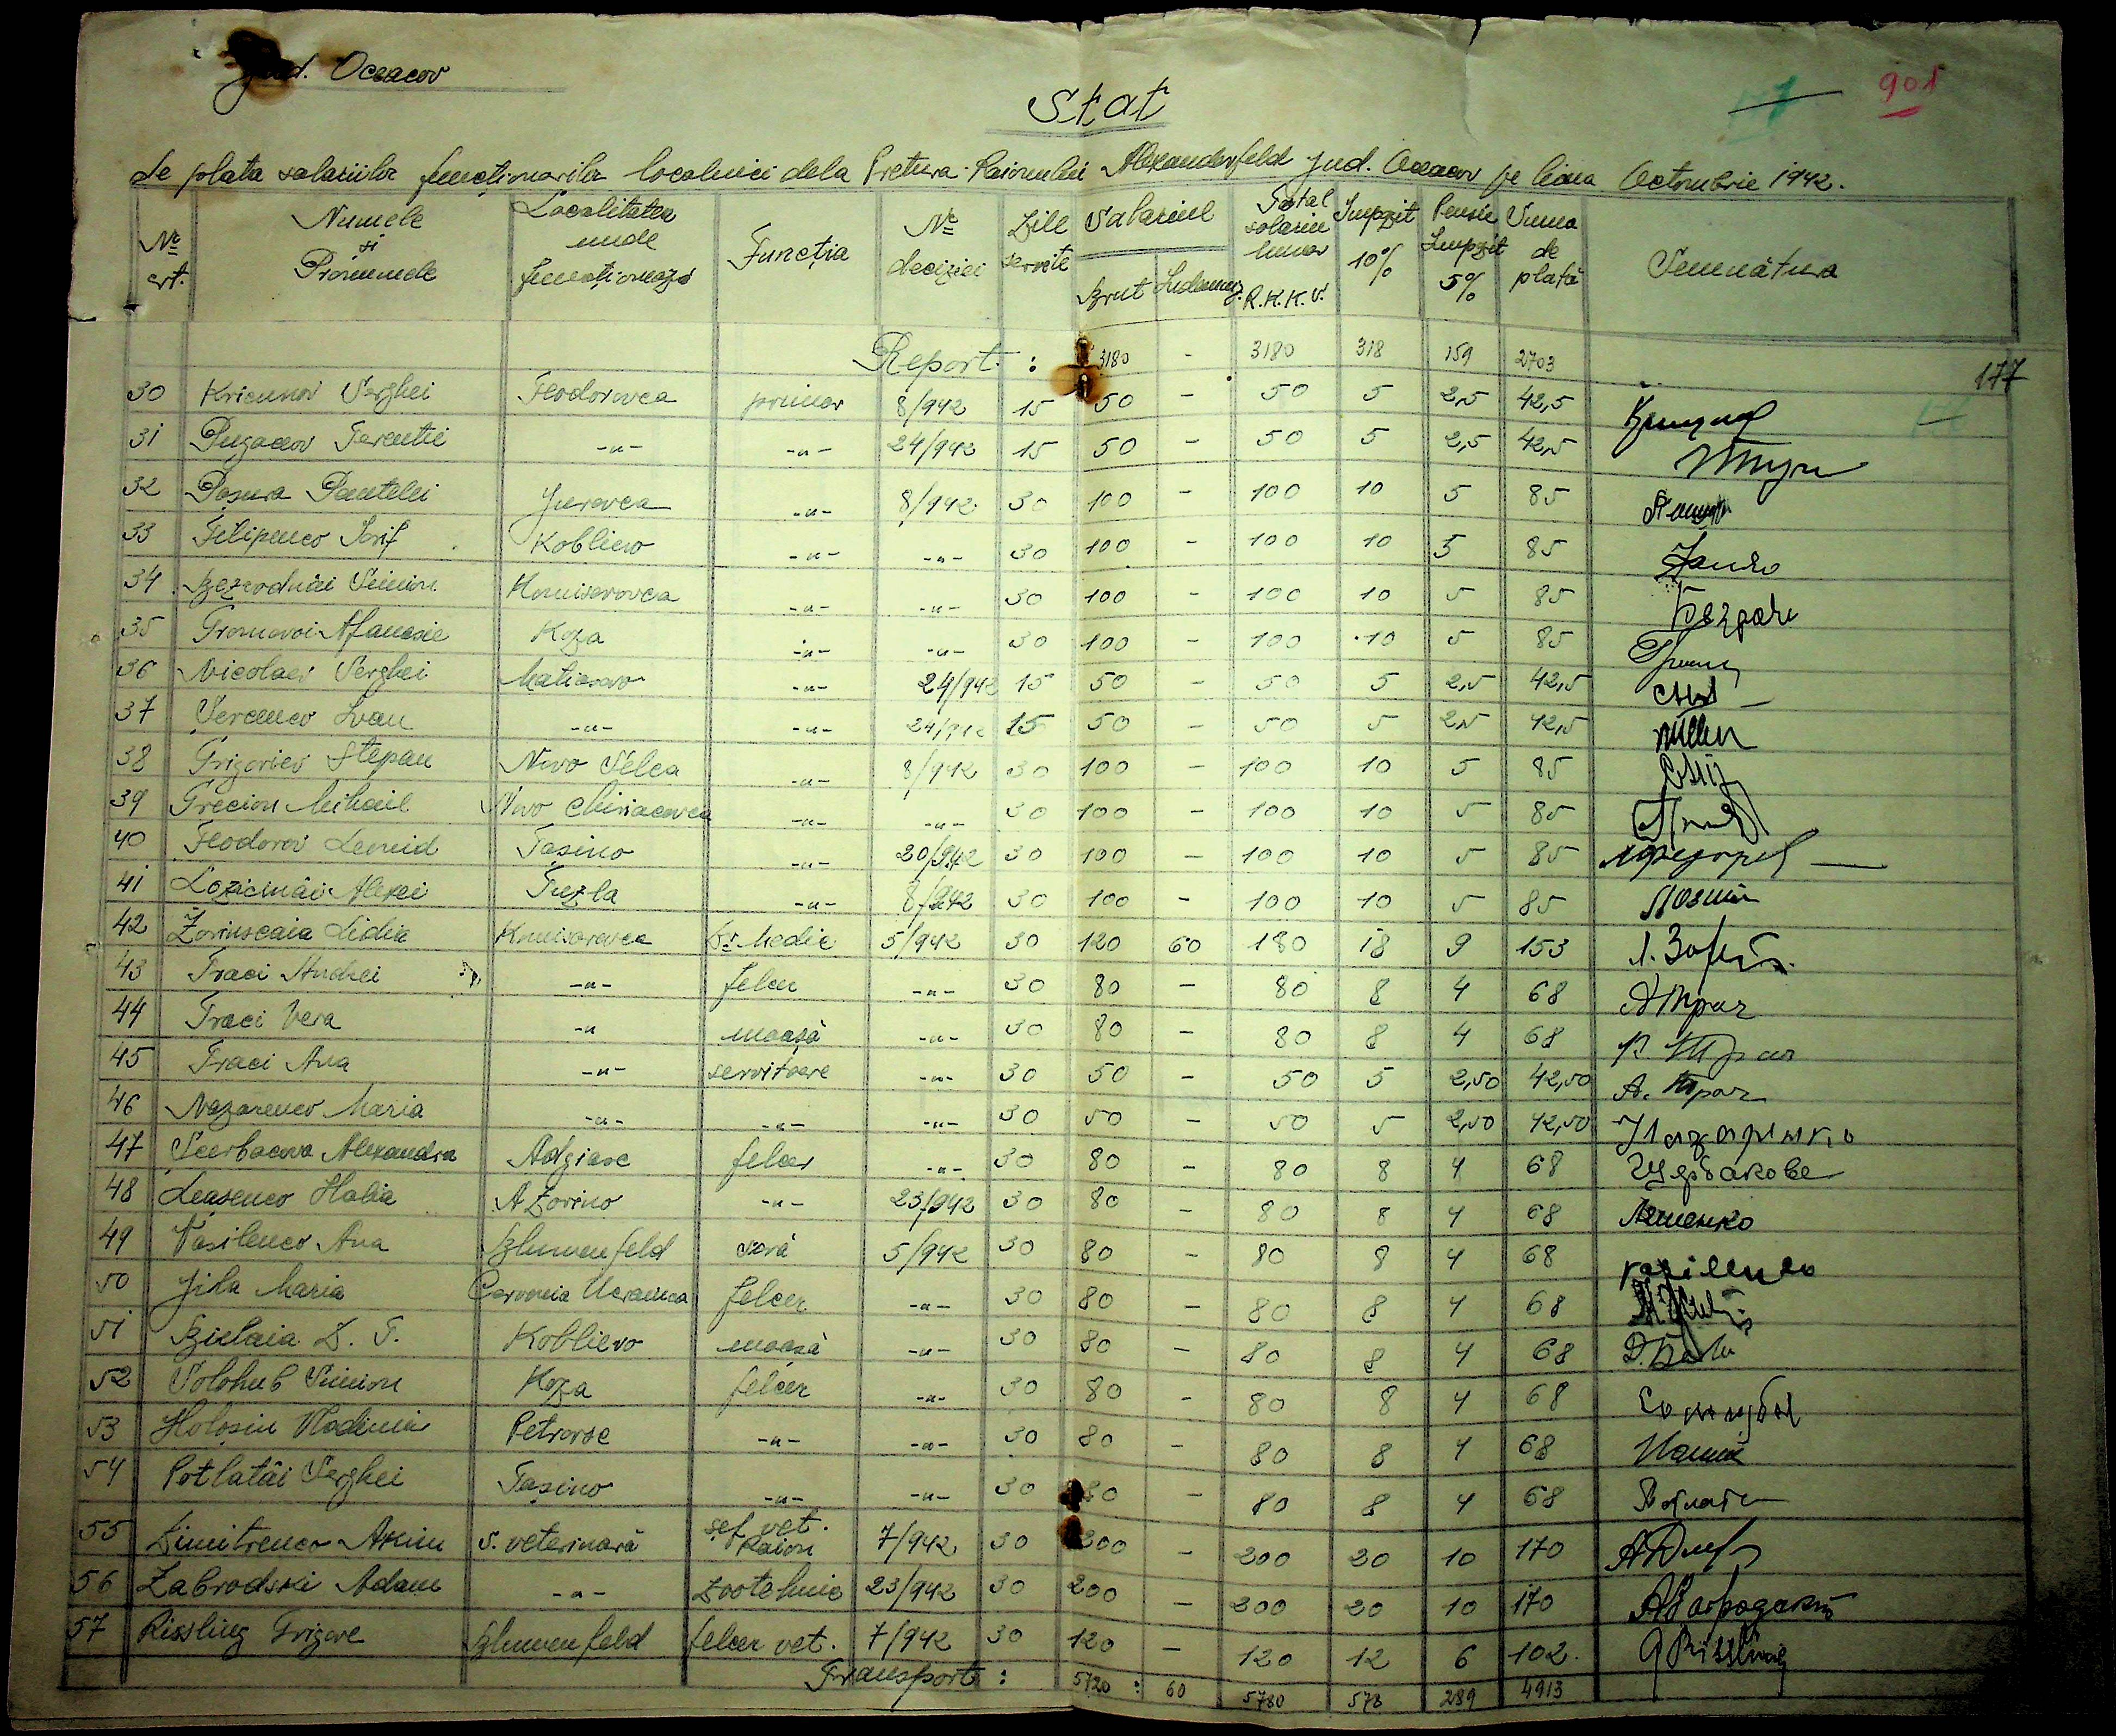 Jud. Oceacov
7
901
Stat
de plata salariilor funcționarilor localnici dela Pretura Raionului Alexanderfeld Jud. Oceacov pe luna Octombrie 1942.
Nr. crt. | Numele și Pronumele | Localitatea unde funcționează | Funcția | Nr. deciziei | Zile servite | Salariul Brut | Indemniz. | Total salariu lunar R.K.K.V. | Impozit 10% | Pensie Impozit 5% | Suma de plată | Semnătura
Report: 3180 - 3180 318 159 2703
177
30 Kriciunov Serghei Feodorovca primar 8/942 15 50 - 50 5 2,5 42,5
31 Pugaciov Terentie -"- -"- 24/942 15 50 - 50 5 2,5 42,5
32 Poșura Pantelei Jurovca -"- 8/942 30 100 - 100 10 5 85
33 Filipenco Iosif Koblievo -"- -"- 30 100 - 100 10 5 85
34 Bezrodnâi Simion Komisarovca -"- -"- 30 100 - 100 10 5 85
35 Gromovoi Afanasie Koza -"- -"- 30 100 - 100 10 5 85
36 Nicolaev Serghei Matiasovo -"- 24/942 15 50 - 50 5 2,5 42,5
37 Serenco Ivan -"- -"- 24/942 15 50 - 50 5 2,5 42,5
38 Grigoriev Stepan Novo Selca -"- 8/942 30 100 - 100 10 5 85
39 Grecion Mihail Novo Chiriacovca -"- -"- 30 100 - 100 10 5 85
40 Feodorov Leonid Tașino -"- 20/942 30 100 - 100 10 5 85
41 Lozicinâi Alexei Tuzla -"- 8/942 30 100 - 100 10 5 85
42 Zorinscaia Lidia Komisarovca Dr. Medic 5/942 30 120 60 180 18 9 153
43 Traci Andrei -"- felcer -"- 30 80 - 80 8 4 68 А Трач
44 Traci Vera -" moașă -"- 30 80 - 80 8 4 68 В Трач
45 Traci Ana -"- servitoare -"- 30 50 - 50 5 2,50 42,50 А. Трач
46 Nazarenco Maria -"- -"- -"- 30 50 - 50 5 2,50 42,50 Назаринко
47 Scerbacova Alexandra Adgiasc felcer -"- 30 80 - 80 8 4 68 Щербакове
48 Leașenco Halia A Zorino -"- 23/942 30 80 - 80 8 4 68 Ляшенко
49 Vasilenco Ana Blumenfeld soră 5/942 30 80 - 80 8 4 68 Vasilenco
50 Jila Maria Cervonia Ucrainca felcer -"- 30 80 - 80 8 4 68
51 Bielaia D. T. Koblievo moașă -"- 30 80 - 80 8 4 68
52 Solohub Simion Koza felcer -"- 30 80 - 80 8 4 68
53 Holoșin Vladimir Petrovsc -"- -"- 30 80 - 80 8 4 68
54 Potlatâi Serghei Tașino -"- -"- 30 80 - 80 8 4 68
55 Dimitrenco Akim S. veterinară șef vet. Raion 7/942 30 200 - 200 20 10 170
56 Zabrodski Adam -"- Zootehnic 23/942 30 200 - 200 20 10 170
57 Rissling Grigore Blumenfeld felcer vet. 7/942 30 120 - 120 12 6 102. G Rissling
Transport: 5720 : 60 5780 578 289 4913